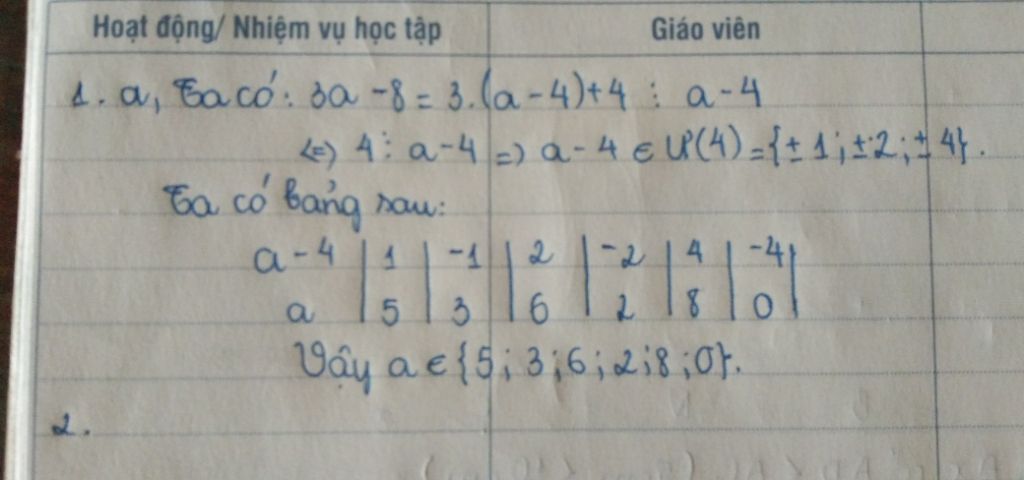 Hoạt động/ Nhiệm vụ học tập Giáo viên
1. a, Ta có: 3a - 8 = 3.(a - 4) + 4 ⋮ a - 4
<=> 4 ⋮ a - 4 => a - 4 ∈ Ư(4) = {± 1; ± 2; ± 4}.
Ta có bảng sau:
a - 4 | 1 | -1 | 2 | -2 | 4 | -4 |
a | 5 | 3 | 6 | 2 | 8 | 0 |
Vậy a ∈ {5; 3; 6; 2; 8; 0}.
2.